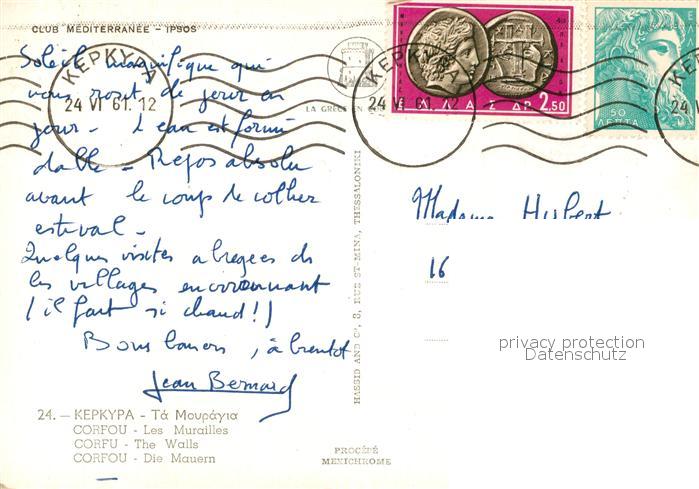 CLUB MÉDITERRANÉE - IPSOS
Soleil magnifique qui
vous rosit de jour en
jour - L'eau est formi
dable - Repos absolu
avant le coup de collier
estival -
Quelques visites abrégées de
les villages environnant
(il fait si chaud!)
Bons baisers, à bientôt
Jean Bernard
24. — ΚΕΡΚΥΡΑ - Τὰ Μουράγια
CORFOU - Les Murailles
CORFU - The Walls
CORFOU - Die Mauern
ΚΕΡΚΥΡΑ
24 VI 61. 12
LA GRÈCE EN
HASSID AND Cº, 8, RUE ST-MINA, THESSALONIKI
PROCÉDÉ
MEXICHROME
ΚΕΡΚΥΡΑ
24 VI 61. 12
ΕΛΛΑΣ ΔΡ 2,50
50
ΛΕΠΤΑ
24
Madame Hubert
16
privacy protection
Datenschutz